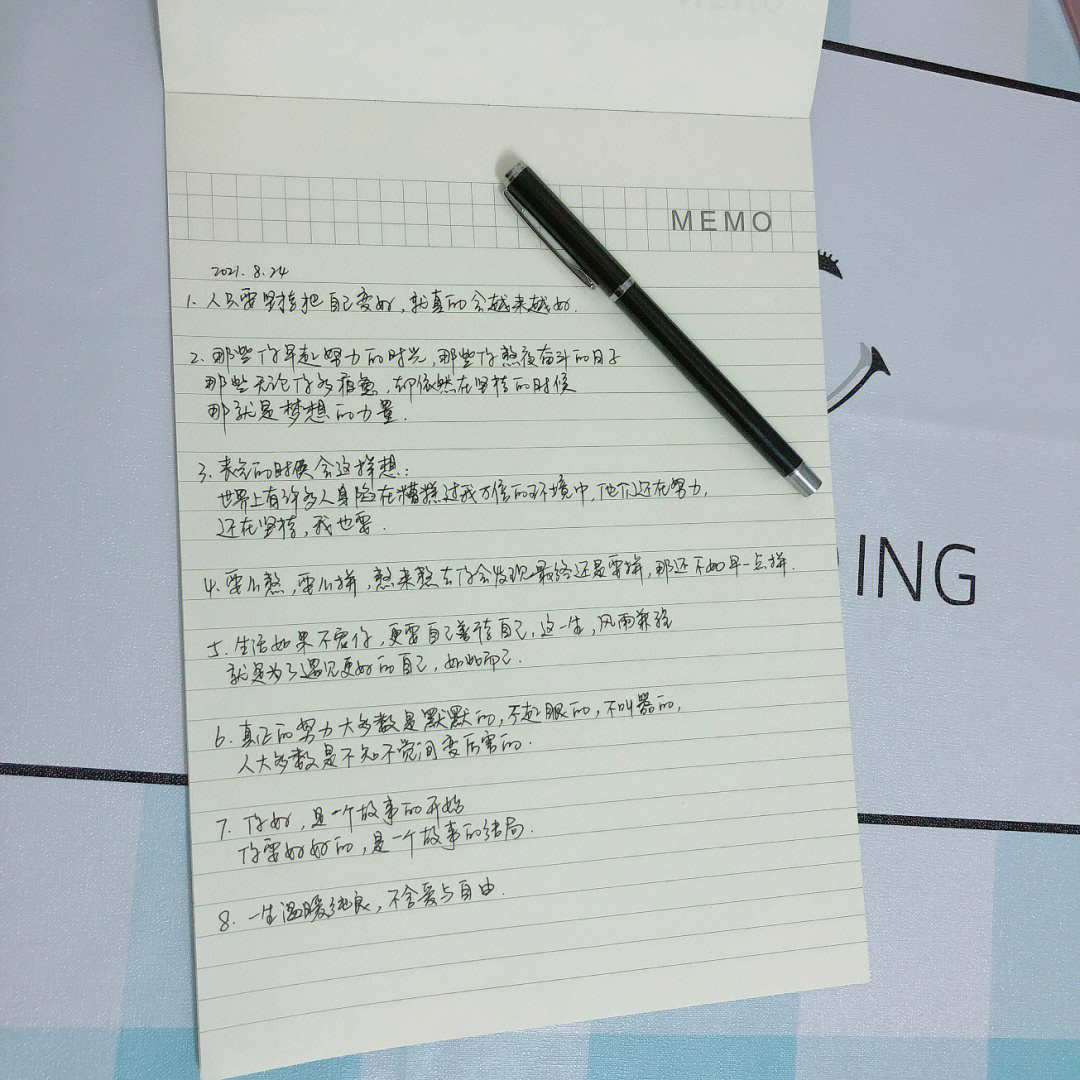 MEMO
2021.8.24
1. 人只要坚持把自己变好,就真的会越来越好.
2. 那些你早起努力的时光,那些你熬夜奋斗的日子
那些无论你多疲惫,却依然在坚持的时候
那就是梦想的力量.
3. 丧的时候会这样想:
世界上有许多人身陷在糟糕过我万倍的环境中,他们还在努力,
还在坚持,我也要.
4. 要么熬,要么拼,熬来熬去你会发现最终还是要拼,那还不如早一点拼.
5. 生活如果不宠你,更要自己善待自己,这一生,风雨兼程
就是为了遇见更好的自己,如此而已.
6. 真正的努力大多数是默默的,不起眼的,不叫嚣的,
人大多数是不知不觉间变厉害的.
7. 你好,是一个故事的开始
你要好好的,是一个故事的结局.
8. 一生温暖纯良,不舍爱与自由.
ING